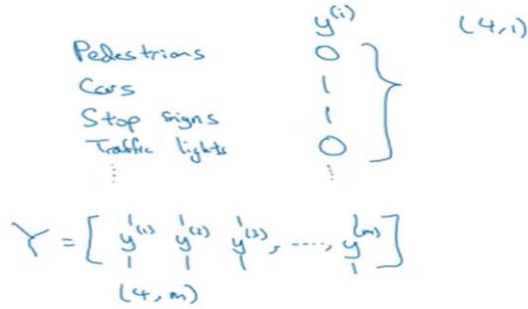 y^(i) (4,1)
Pedestrians 0
Cars 1
Stop signs 1
Traffic lights 0
⋮ ⋮
Y = [ y^(1) y^(2) y^(3), ...., y^(m) ]
(4,m)